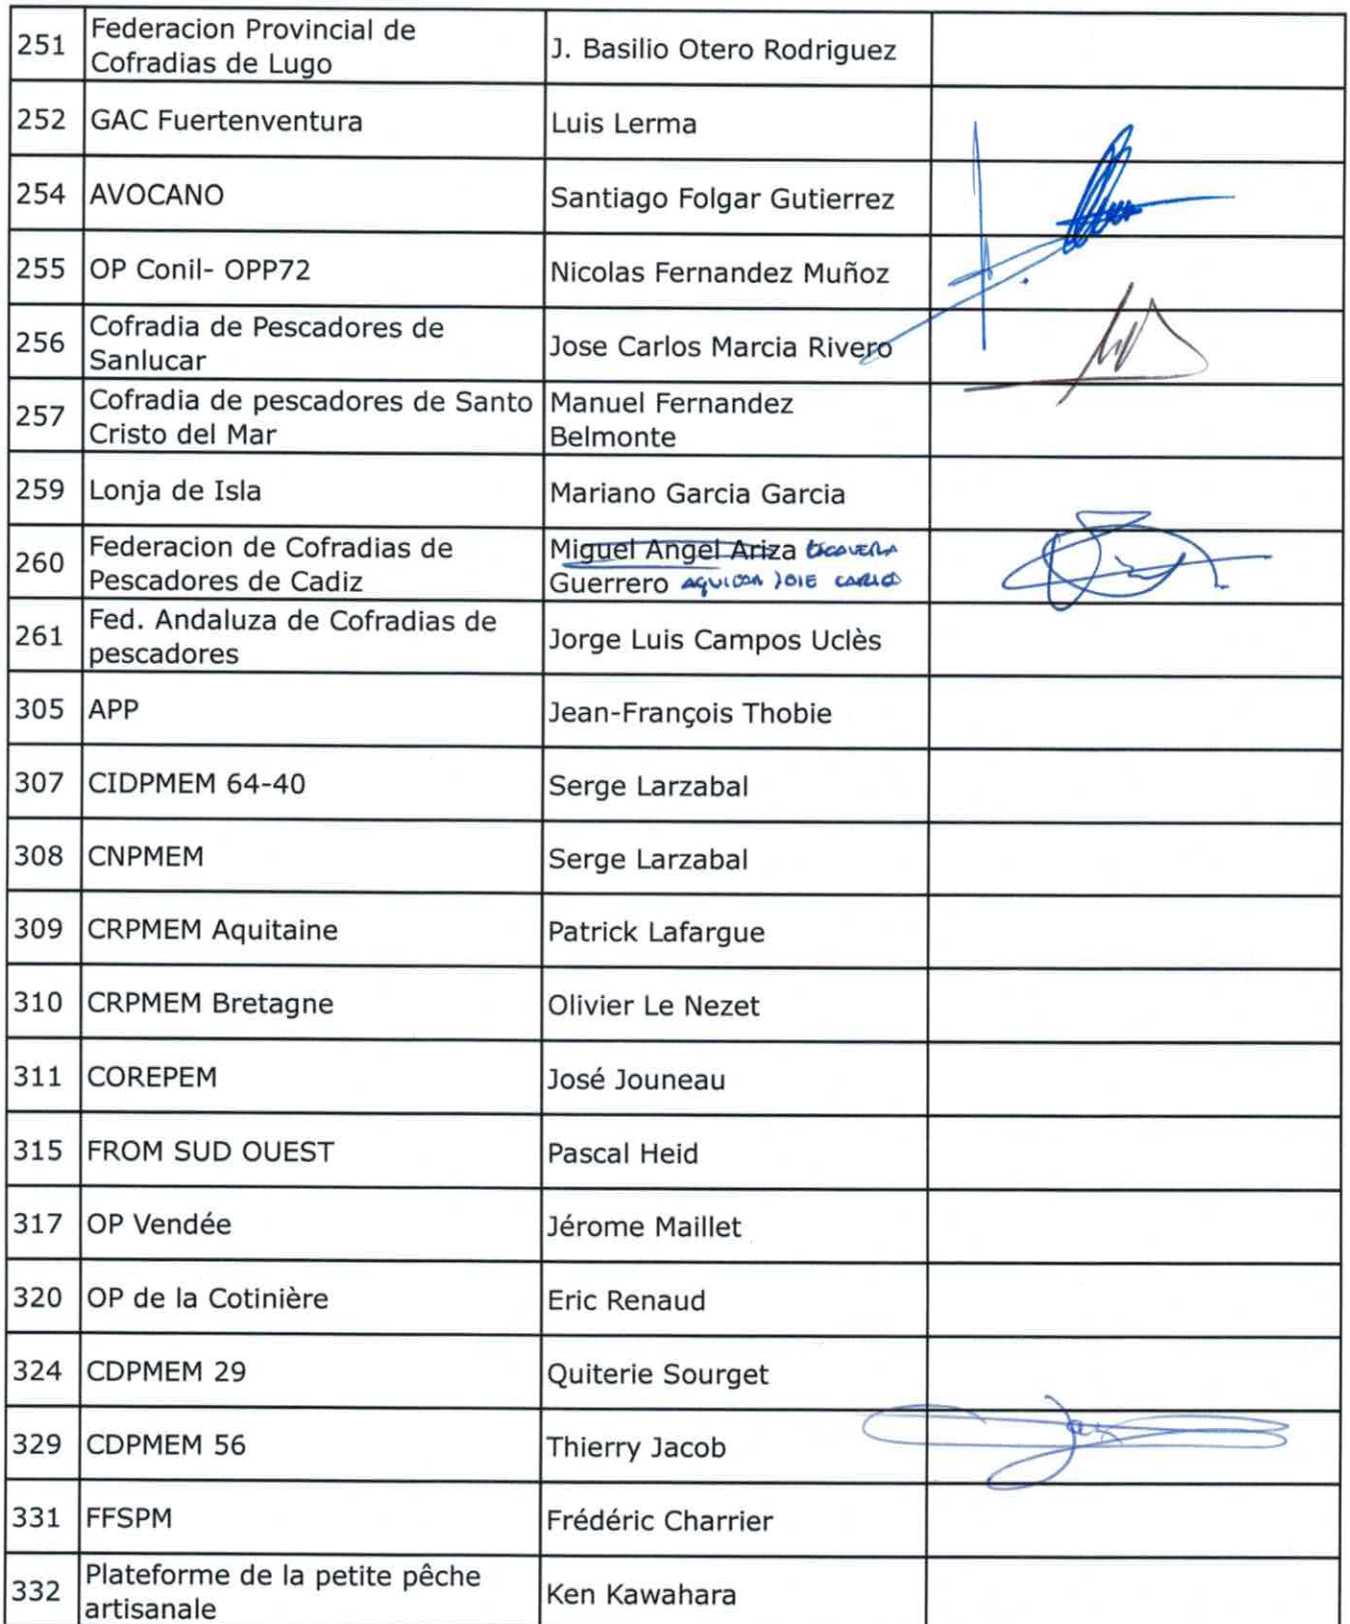 251 Federacion Provincial de
Cofradias de Lugo J. Basilio Otero Rodriguez
252 GAC Fuertenventura Luis Lerma
254 AVOCANO Santiago Folgar Gutierrez
255 OP Conil- OPP72 Nicolas Fernandez Muñoz
256 Cofradia de Pescadores de
Sanlucar Jose Carlos Marcia Rivero
257 Cofradia de pescadores de Santo Manuel Fernandez
Cristo del Mar Belmonte
259 Lonja de Isla Mariano Garcia Garcia
260 Federacion de Cofradias de Miguel Angel Ariza
Pescadores de Cadiz Guerrero JOSE CARLOS
261 Fed. Andaluza de Cofradias de
pescadores Jorge Luis Campos Uclès
305 APP Jean-François Thobie
307 CIDPMEM 64-40 Serge Larzabal
308 CNPMEM Serge Larzabal
309 CRPMEM Aquitaine Patrick Lafargue
310 CRPMEM Bretagne Olivier Le Nezet
311 COREPEM José Jouneau
315 FROM SUD OUEST Pascal Heid
317 OP Vendée Jérome Maillet
320 OP de la Cotinière Eric Renaud
324 CDPMEM 29 Quiterie Sourget
329 CDPMEM 56 Thierry Jacob
331 FFSPM Frédéric Charrier
332 Plateforme de la petite pêche
artisanale Ken Kawahara